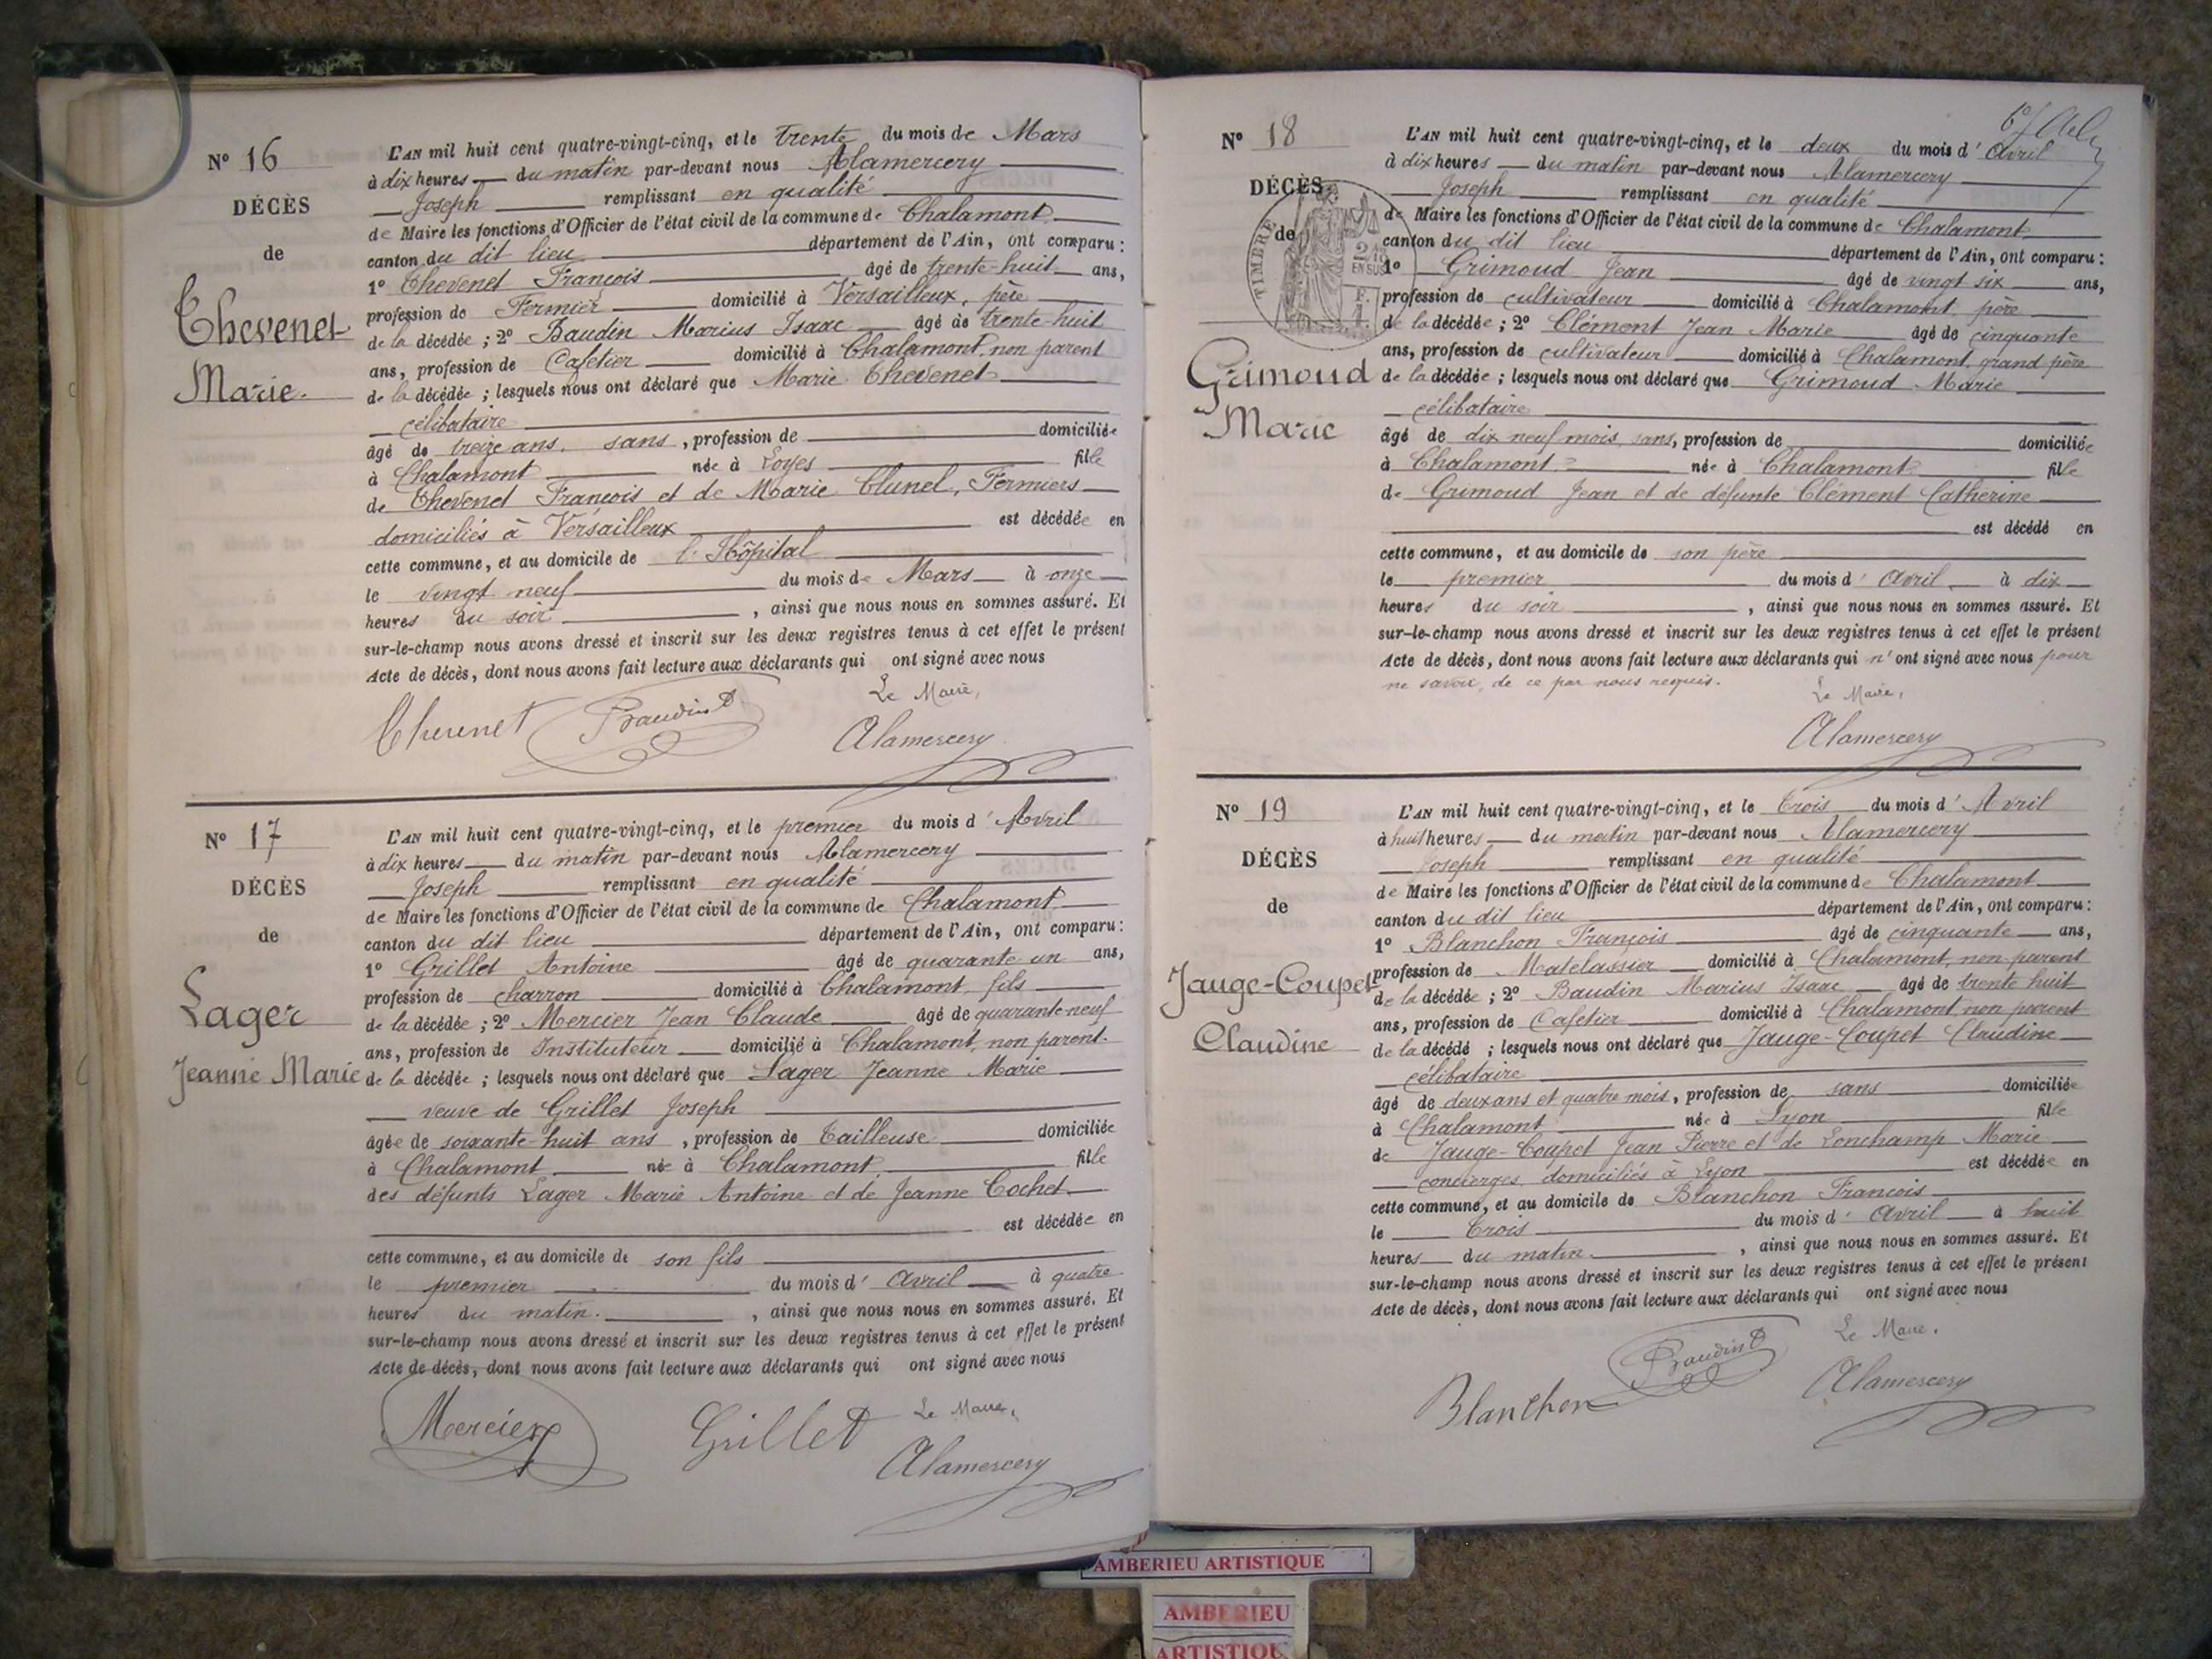 N° 16
DÉCÈS
de
Thevenet
Marie.
L'AN mil huit cent quatre-vingt-cinq, et le trente du mois de Mars
à dix heures du matin par-devant nous Alamercery
Joseph remplissant en qualité
de Maire les fonctions d'Officier de l'état civil de la commune de Chalamont
canton du dit lieu département de l'Ain, ont comparu :
1° Thevenet François âgé de trente-huit ans,
profession de Fermier domicilié à Versailleux, père
de la décédée ; 2° Baudin Marius Isaac âgé de trente-huit
ans, profession de Cafetier domicilié à Chalamont, non parent
de la décédée ; lesquels nous ont déclaré que Marie Thevenet
célibataire
âgé de treize ans. sans, profession de domiciliée
à Chalamont née à Loyes fille
de Thevenet François et de Marie Clunel, Fermiers
domiciliés à Versailleux est décédée en
cette commune, et au domicile de l'Hôpital
le vingt neuf du mois de Mars à onze
heures du soir, ainsi que nous nous en sommes assuré. Et
sur-le-champ nous avons dressé et inscrit sur les deux registres tenus à cet effet le présent
Acte de décès, dont nous avons fait lecture aux déclarants qui ont signé avec nous
Le Maire,
Thevenet Baudin Alamercery
N° 17
DÉCÈS
de
Lager
Jeanne Marie
L'AN mil huit cent quatre-vingt-cinq, et le premier du mois d'Avril
à dix heures du matin par-devant nous Alamercery
Joseph remplissant en qualité
de Maire les fonctions d'Officier de l'état civil de la commune de Chalamont
canton du dit lieu département de l'Ain, ont comparu :
1° Grillet Antoine âgé de quarante un ans,
profession de charron domicilié à Chalamont, fils
de la décédée ; 2° Mercier Jean Claude âgé de quarante neuf
ans, profession de Instituteur domicilié à Chalamont, non parent.
de la décédée ; lesquels nous ont déclaré que Lager Jeanne Marie
veuve de Grillet Joseph
âgée de soixante-huit ans, profession de Tailleuse domiciliée
à Chalamont née à Chalamont fille
des défunts Lager Marie Antoine et de Jeanne Cochet
est décédée en
cette commune, et au domicile de son fils
le premier du mois d'Avril à quatre
heures du matin., ainsi que nous nous en sommes assuré. Et
sur-le-champ nous avons dressé et inscrit sur les deux registres tenus à cet effet le présent
Acte de décès, dont nous avons fait lecture aux déclarants qui ont signé avec nous
Le Maire,
Mercier Grillet Alamercery
N° 18
DÉCÈS
de
TIMBRE
2/10 EN SUS
Grimoud
Marie
L'AN mil huit cent quatre-vingt-cinq, et le deux du mois d'Avril
à dix heures du matin par-devant nous Alamercery
Joseph remplissant en qualité
de Maire les fonctions d'Officier de l'état civil de la commune de Chalamont
canton du dit lieu département de l'Ain, ont comparu :
1° Grimoud Jean âgé de vingt six ans,
profession de cultivateur domicilié à Chalamont, père
de la décédée ; 2° Clément Jean Marie âgé de cinquante
ans, profession de cultivateur domicilié à Chalamont, grand père
de la décédée ; lesquels nous ont déclaré que Grimoud Marie
célibataire
âgé de dix neuf mois, sans, profession de domiciliée
à Chalamont née à Chalamont fille
de Grimoud Jean et de défunte Clément Catherine
est décédé en
cette commune, et au domicile de son père
le premier du mois d'Avril à dix
heures du soir, ainsi que nous nous en sommes assuré. Et
sur-le-champ nous avons dressé et inscrit sur les deux registres tenus à cet effet le présent
Acte de décès, dont nous avons fait lecture aux déclarants qui n'ont signé avec nous pour
ne savoir, de ce par nous requis.
Le Maire,
Alamercery
N° 19
DÉCÈS
de
Jauge-Coupet
Claudine
L'AN mil huit cent quatre-vingt-cinq, et le trois du mois d'Avril
à huit heures du matin par-devant nous Alamercery
Joseph remplissant en qualité
de Maire les fonctions d'Officier de l'état civil de la commune de Chalamont
canton du dit lieu département de l'Ain, ont comparu :
1° Blanchon François âgé de cinquante ans,
profession de Matelassier domicilié à Chalamont, non parent
de la décédée ; 2° Baudin Marius Isaac âgé de trente huit
ans, profession de Cafetier domicilié à Chalamont, non parent
de la décédé ; lesquels nous ont déclaré que Jauge-Coupet Claudine
célibataire
âgé de deux ans et quatre mois, profession de sans domiciliée
à Chalamont née à Lyon fille
de Jauge-Coupet Jean Pierre et de Lonchamp Marie
concierges domiciliés à Lyon est décédée en
cette commune, et au domicile de Blanchon François
le trois du mois d'Avril à huit
heures du matin., ainsi que nous nous en sommes assuré. Et
sur-le-champ nous avons dressé et inscrit sur les deux registres tenus à cet effet le présent
Acte de décès, dont nous avons fait lecture aux déclarants qui ont signé avec nous
Le Maire.
Blanchon Baudin Alamercery
AMBERIEU ARTISTIQUE
AMBERIEU
ARTISTIQU